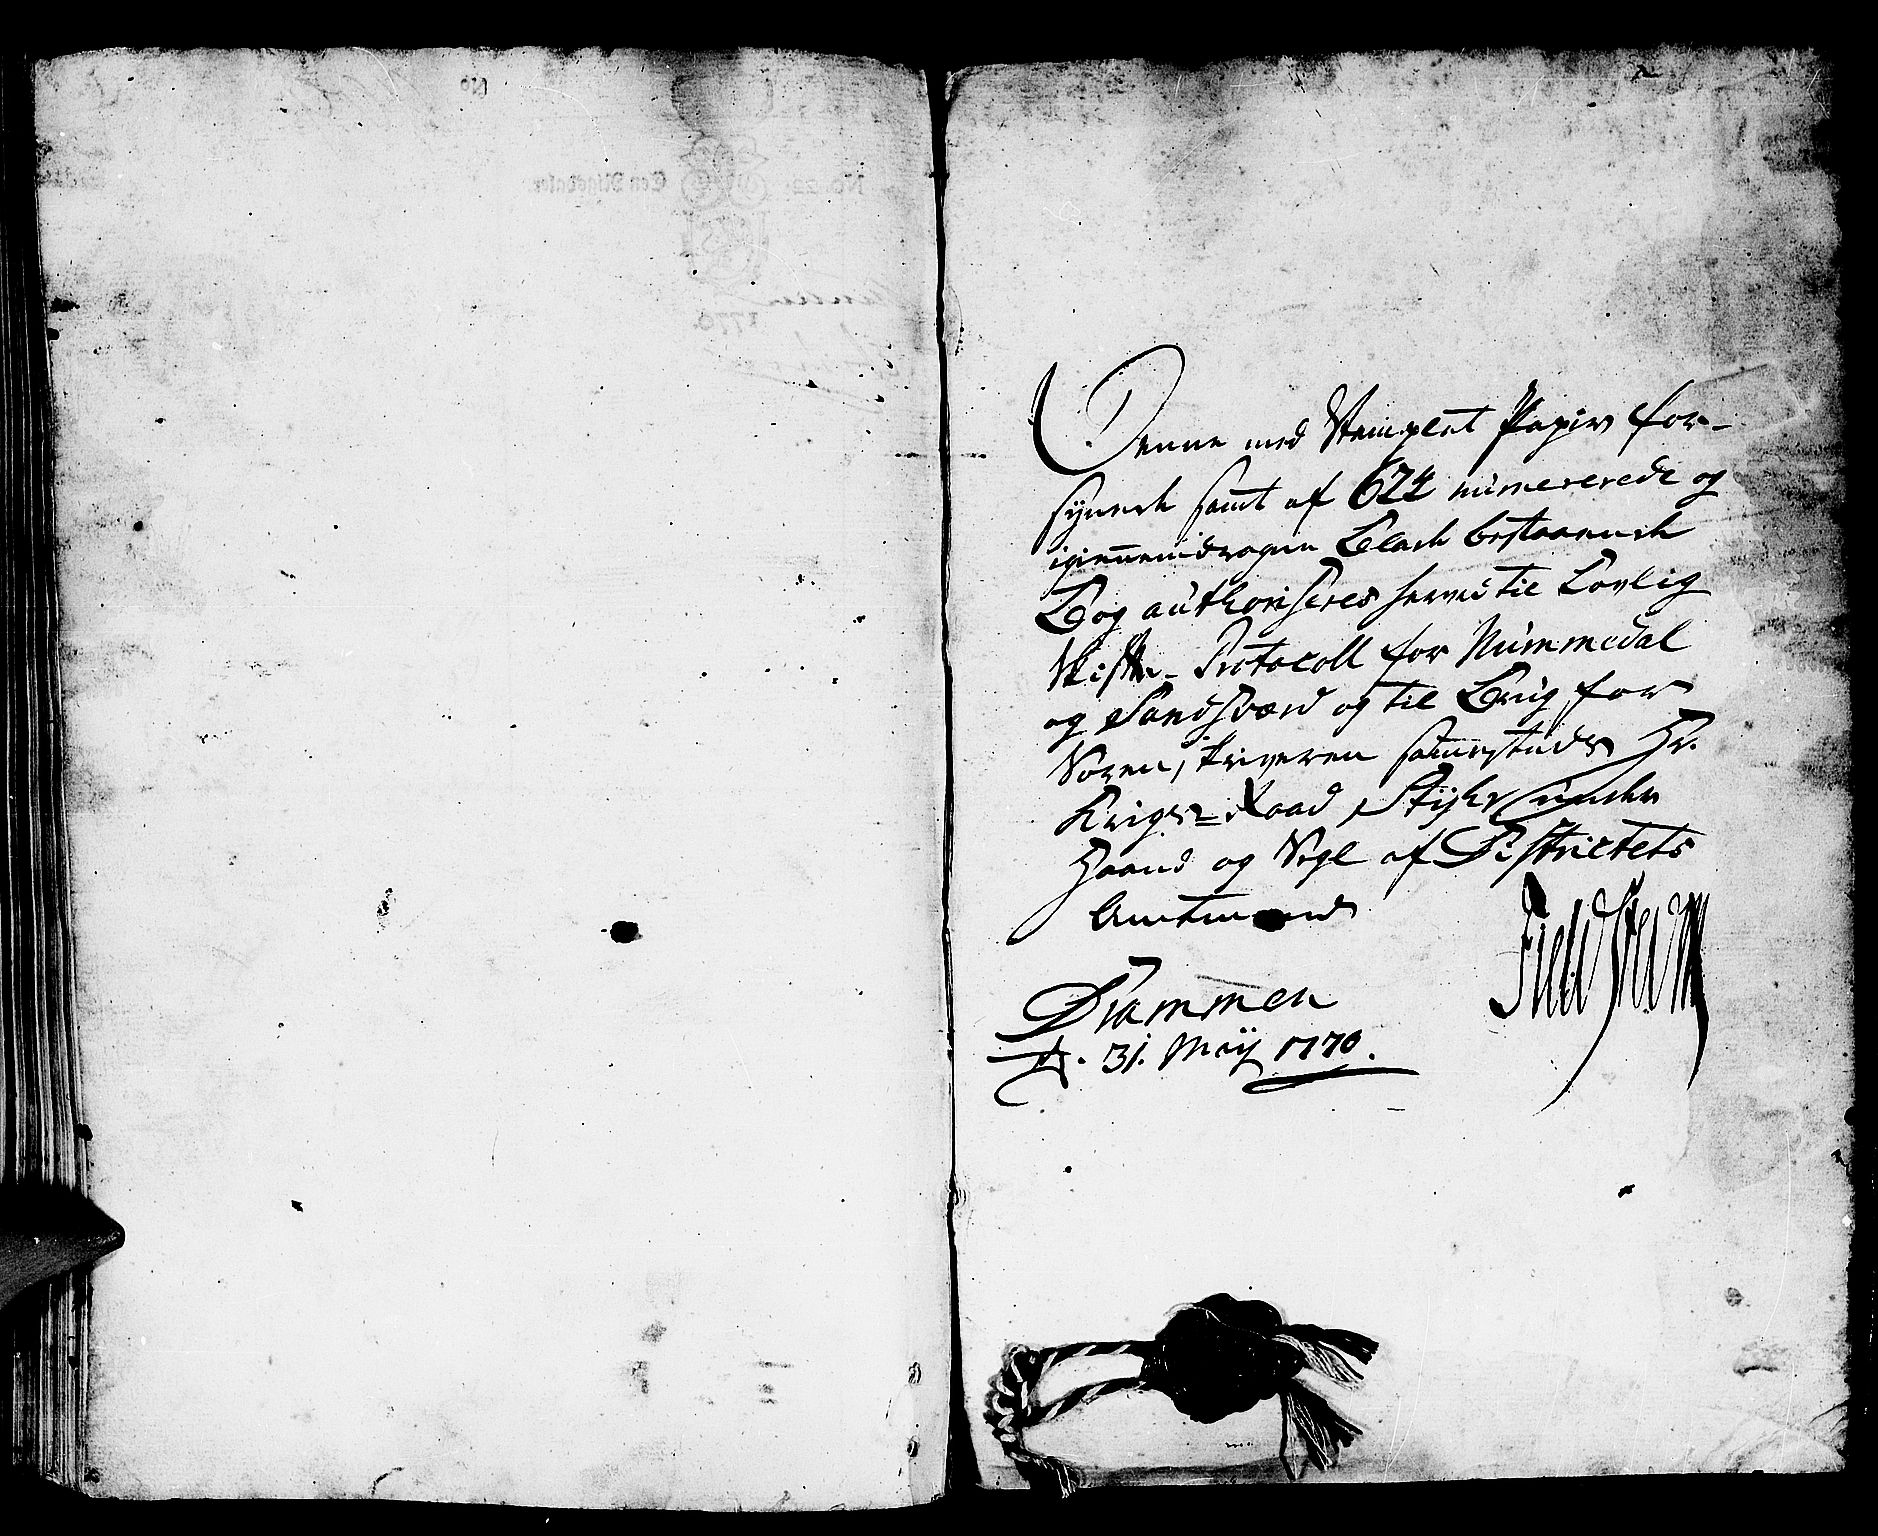 Denne med Stemplet Papiir for-
synede samt af 624 numererede og
igiennemdragne Blade bestaaende
Bog authoriseres herved til Lovlig
Skifte- Protocoll for Nummedal
og Sandsværd og til Brug for
Sorenskriveren sammestæds Hr.
Kriges-Raad under
Haand og Segl af Districtets
Amtmand
Fieldsted
Drammen
D. 31. Maij 1770.